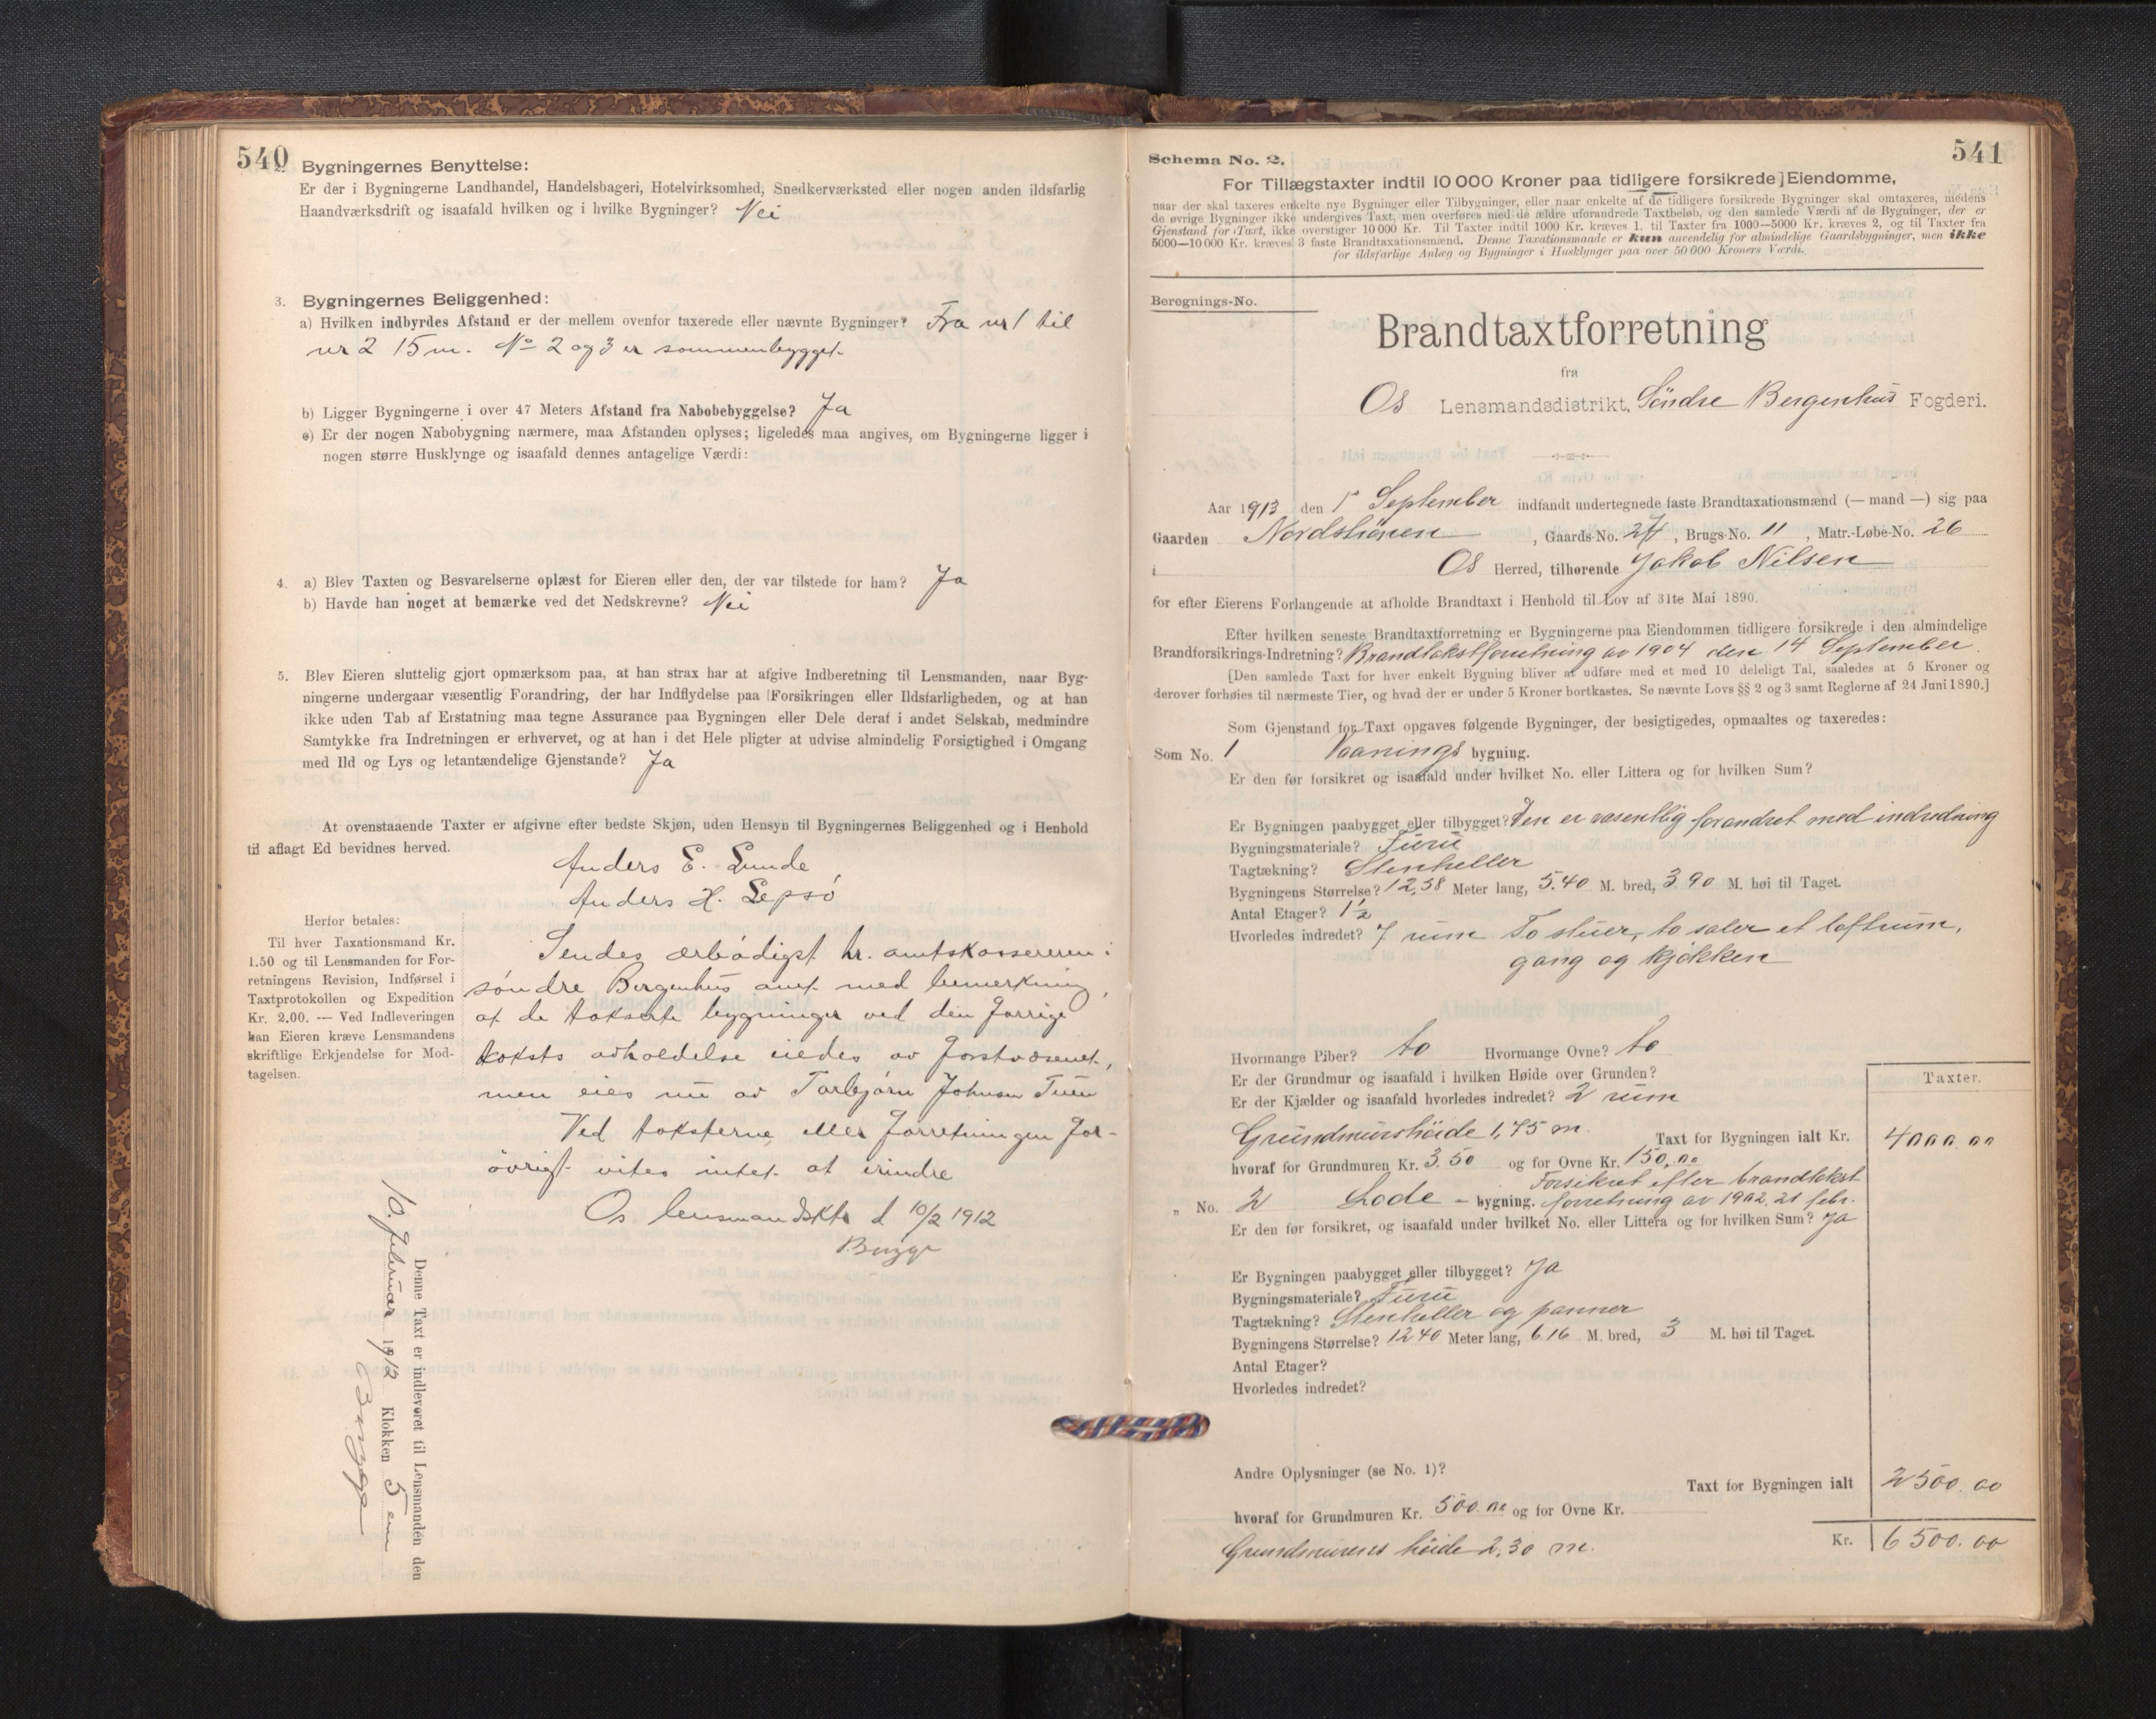 540
2. Bygningernes Benyttelse:
Er der i Bygningerne Landhandel, Handelsbageri, Hotelvirksomhed, Snedkerværksted eller nogen anden ildsfarlig
Haandværksdrift og isaafald hvilken og i hvilke Bygninger? Nei
3. Bygningernes Beliggenhed:
a) Hvilken indbyrdes Afstand er der mellem ovenfor taxerede eller nævnte Bygninger? Fra nr 1 til
nr 2 15 m. No 2 og 3 er sammenbygget.
b) Ligger Bygningerne i over 47 Meters Afstand fra Nabobebyggelse? Ja
c) Er der nogen Nabobygning nærmere, maa Afstanden oplyses; ligeledes maa angives, om Bygningerne ligger i
nogen større Husklynge og isaafald dennes antagelige Værdi:
4. a) Blev Taxten og Besvarelserne oplæst for Eieren eller den, der var tilstede for ham? Ja
b) Havde han noget at bemærke ved det Nedskrevne? Nei
5. Blev Eieren sluttelig gjort opmærksom paa, at han strax har at afgive Indberetning til Lensmanden, naar Byg-
ningerne undergaar væsentlig Forandring, der har Indflydelse paa Forsikringen eller Ildsfarligheden, og at han
ikke uden Tab af Erstatning maa tegne Assurance paa Bygningen eller Dele deraf i andet Selskab, medmindre
Samtykke fra Indretningen er erhvervet, og at han i det Hele pligter at udvise almindelig Forsigtighed i Omgang
med Ild og Lys og letantændelige Gjenstande? Ja
At ovenstaaende Taxter er afgivne efter bedste Skjøn, uden Hensyn til Bygningernes Beliggenhed og i Henhold
til aflagt Ed bevidnes herved.
Anders E. Lunde
Anders H. Lepsö
Herfor betales:
Til hver Taxationsmand Kr.
1.50 og til Lensmanden for For-
retningens Revision, Indførsel i
Taxtprotokollen og Expedition
Kr. 2.00. — Ved Indleveringen
kan Eieren kræve Lensmandens
skriftlige Erkjendelse for Mod-
tagelsen.
Sendes ærbödigst hr. amtskassereren i
söndre Bergenhus amt med bemerkning,
at de takserte bygninger ved den forrige
taksts avholdelse eiedes av forstvæsenet,
men eies nu av Torbjørn Johnsen Tuen
Ved taksterne eller forretningen for-
övrigt vites intet at erindre
Os lensmandskt. d 10/2 1912
Bugge
Denne Taxt er indleveret til Lensmanden den
10. februar 1912 Klokken 5 em
Bugge
541
Schema No. 2.
For Tillægstaxter indtil 10 000 Kroner paa tidligere forsikrede Eiendomme,
naar der skal taxeres enkelte nye Bygninger eller Tilbygninger, eller naar enkelte af de tidligere forsikrede Bygninger skal omtaxeres, medens
de øvrige Bygninger ikke undergives Taxt, men overføres med de ældre uforandrede Taxtbeløb, og den samlede Værdi af de Bygninger, der er
Gjenstand for Taxt, ikke overstiger 10 000 Kr. Til Taxter indtil 1000 Kr. kræves 1, til Taxter fra 1000—5000 Kr. kræves 2, og til Taxter fra
5000—10 000 Kr. kræves 3 faste Brandtaxationsmænd. Denne Taxationsmaade er kun anvendelig for almindelige Gaardsbygninger, men ikke
for ildsfarlige Anlæg og Bygninger i Husklynger paa over 50 000 Kroners Værdi.
Beregnings-No.
Brandtaxtforretning
fra
Os Lensmandsdistrikt, Söndre Bergenhus Fogderi.
Aar 1913 den 1 September indfandt undertegnede faste Brandtaxationsmænd (— mand —) sig paa
Gaarden Nordströnen, Gaards-No. 27, Brugs-No. 11, Matr.-Løbe-No. 26
i Os Herred, tilhørende Jakob Nilsen
for efter Eierens Forlangende at afholde Brandtaxt i Henhold til Lov af 31te Mai 1890.
Efter hvilken seneste Brandtaxtforretning er Bygningerne paa Eiendommen tidligere forsikrede i den almindelige
Brandforsikrings-Indretning? Brandtakstforretning av 1904 den 14 September.
[Den samlede Taxt for hver enkelt Bygning bliver at udføre med et med 10 deleligt Tal, saaledes at 5 Kroner og
derover forhøies til nærmeste Tier, og hvad der er under 5 Kroner bortkastes. Se nævnte Lovs §§ 2 og 3 samt Reglerne af 24 Juni 1890.]
Som Gjenstand for Taxt opgaves følgende Bygninger, der besigtigedes, opmaaltes og taxeredes:
Som No. 1 Vaanings bygning.
Er den før forsikret og isaafald under hvilket No. eller Littera og for hvilken Sum?
Er Bygningen paabygget eller tilbygget? Den er væsentlig forandret med indredning
Bygningsmateriale? Furu
Tagtækning? Stenheller
Bygningens Størrelse? 12,58 Meter lang, 5.40 M. bred, 3.90 M. høi til Taget.
Antal Etager? 1½
Hvorledes indredet? 7 rum To stuer, to saler et loftrum,
gang og kjökken
Hvormange Piber? to Hvormange Ovne? to
Er der Grundmur og isaafald i hvilken Høide over Grunden?
Er der Kjælder og isaafald hvorledes indredet? 2 rum
Taxter.
Grundmurshöide 1,75 m. Taxt for Bygningen ialt Kr. 4000.00
hvoraf for Grundmuren Kr. 3.50 og for Ovne Kr. 150,00
Forsikret efter brandtakst
" No. 2 Løde - bygning. forretning av 1902. 21 febr.
Er den før forsikret, og isaafald under hvilket No. eller Littera og for hvilken Sum? Ja
Er Bygningen paabygget eller tilbygget? Ja
Bygningsmateriale? Furu
Tagtækning? Stenheller og panner
Bygningens Størrelse? 12 40 Meter lang, 6.16 M. bred, 3 M. høi til Taget.
Antal Etager?
Hvorledes indredet?
Andre Oplysninger (se No. 1)?
Taxt for Bygningen ialt 2500.00
hvoraf for Grundmuren Kr. 500.00 og for Ovne Kr.
Kr. 6500.00
Grundmurens höide 2,30 m.